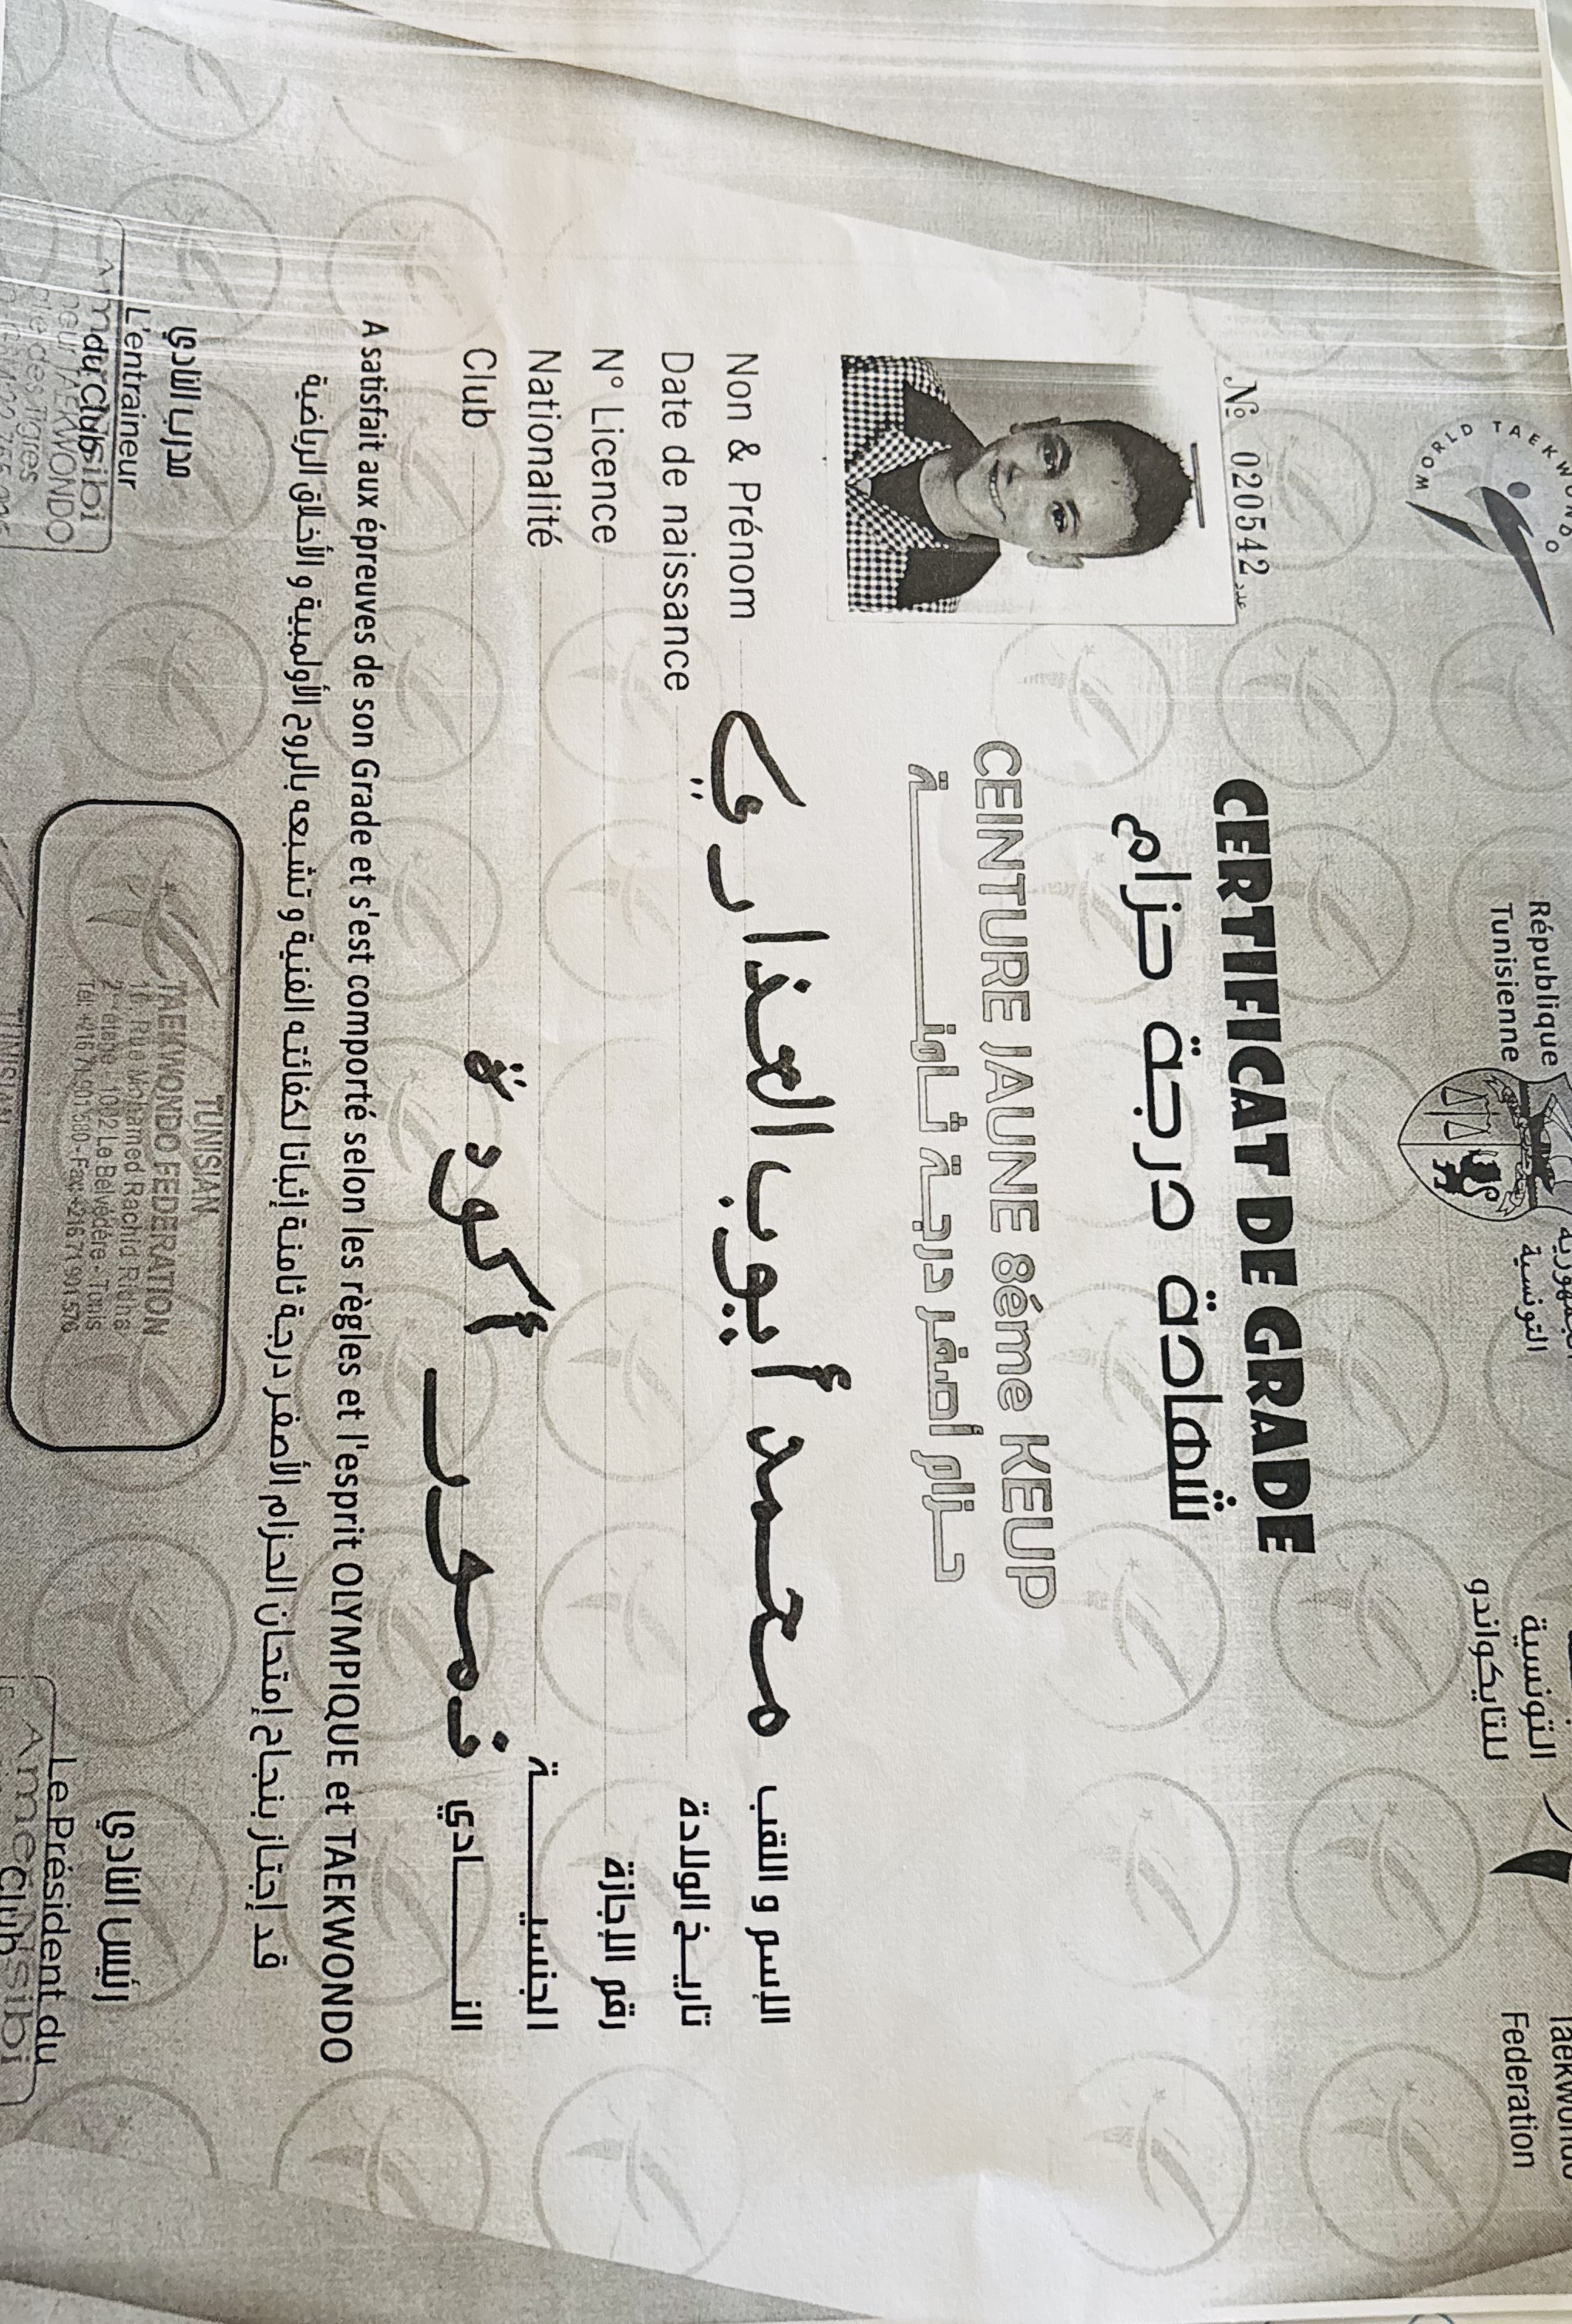 WORLD TAEKWONDO
République
Tunisienne
التونسية
التونسية
للتايكواندو
Taekwondo
Federation
№ 020542 عدد
CERTIFICAT DE GRADE
شهادة درجة حزام
CEINTURE JAUNE 8éme KEUP
حزام أصفر درجة ثامنة
Non & Prénom محمد أيوب العذاري الإسم و اللقب
Date de naissance تاريخ الولادة
N° Licence رقم الإجازة
Nationalité الجنسية
Club النادي
A satisfait aux épreuves de son Grade et s'est comporté selon les règles et l'esprit OLYMPIQUE et TAEKWONDO
قد إجتاز بنجاح إمتحان الحزام الأصفر درجة ثامنة إثباتا لكفائته الفنية و تشبعه بالروح الأولمبية و الأخلاق الرياضية
مدرب النادي
L'entraineur
du Club
TAEKWONDO
des Tigres
TUNISIAN
TAEKWONDO FEDERATION
16, Rue Mohamed Rachid Ridha
2° étage - 1002 Le Belvédère - Tunis
رئيس النادي
Le Président du
Club